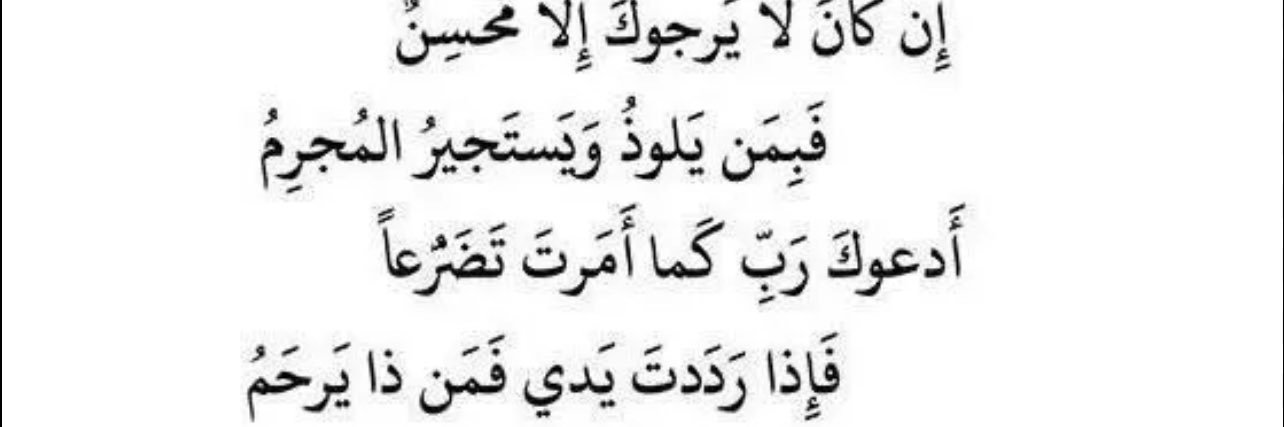 إِن كانَ لا يَرجوكَ إِلّا مُحسِنٌ
فَبِمَن يَلوذُ وَيَستَجيرُ المُجرِمُ
أَدعوكَ رَبِّ كَما أَمَرتَ تَضَرُّعاً
فَإِذا رَدَدتَ يَدي فَمَن ذا يَرحَمُ